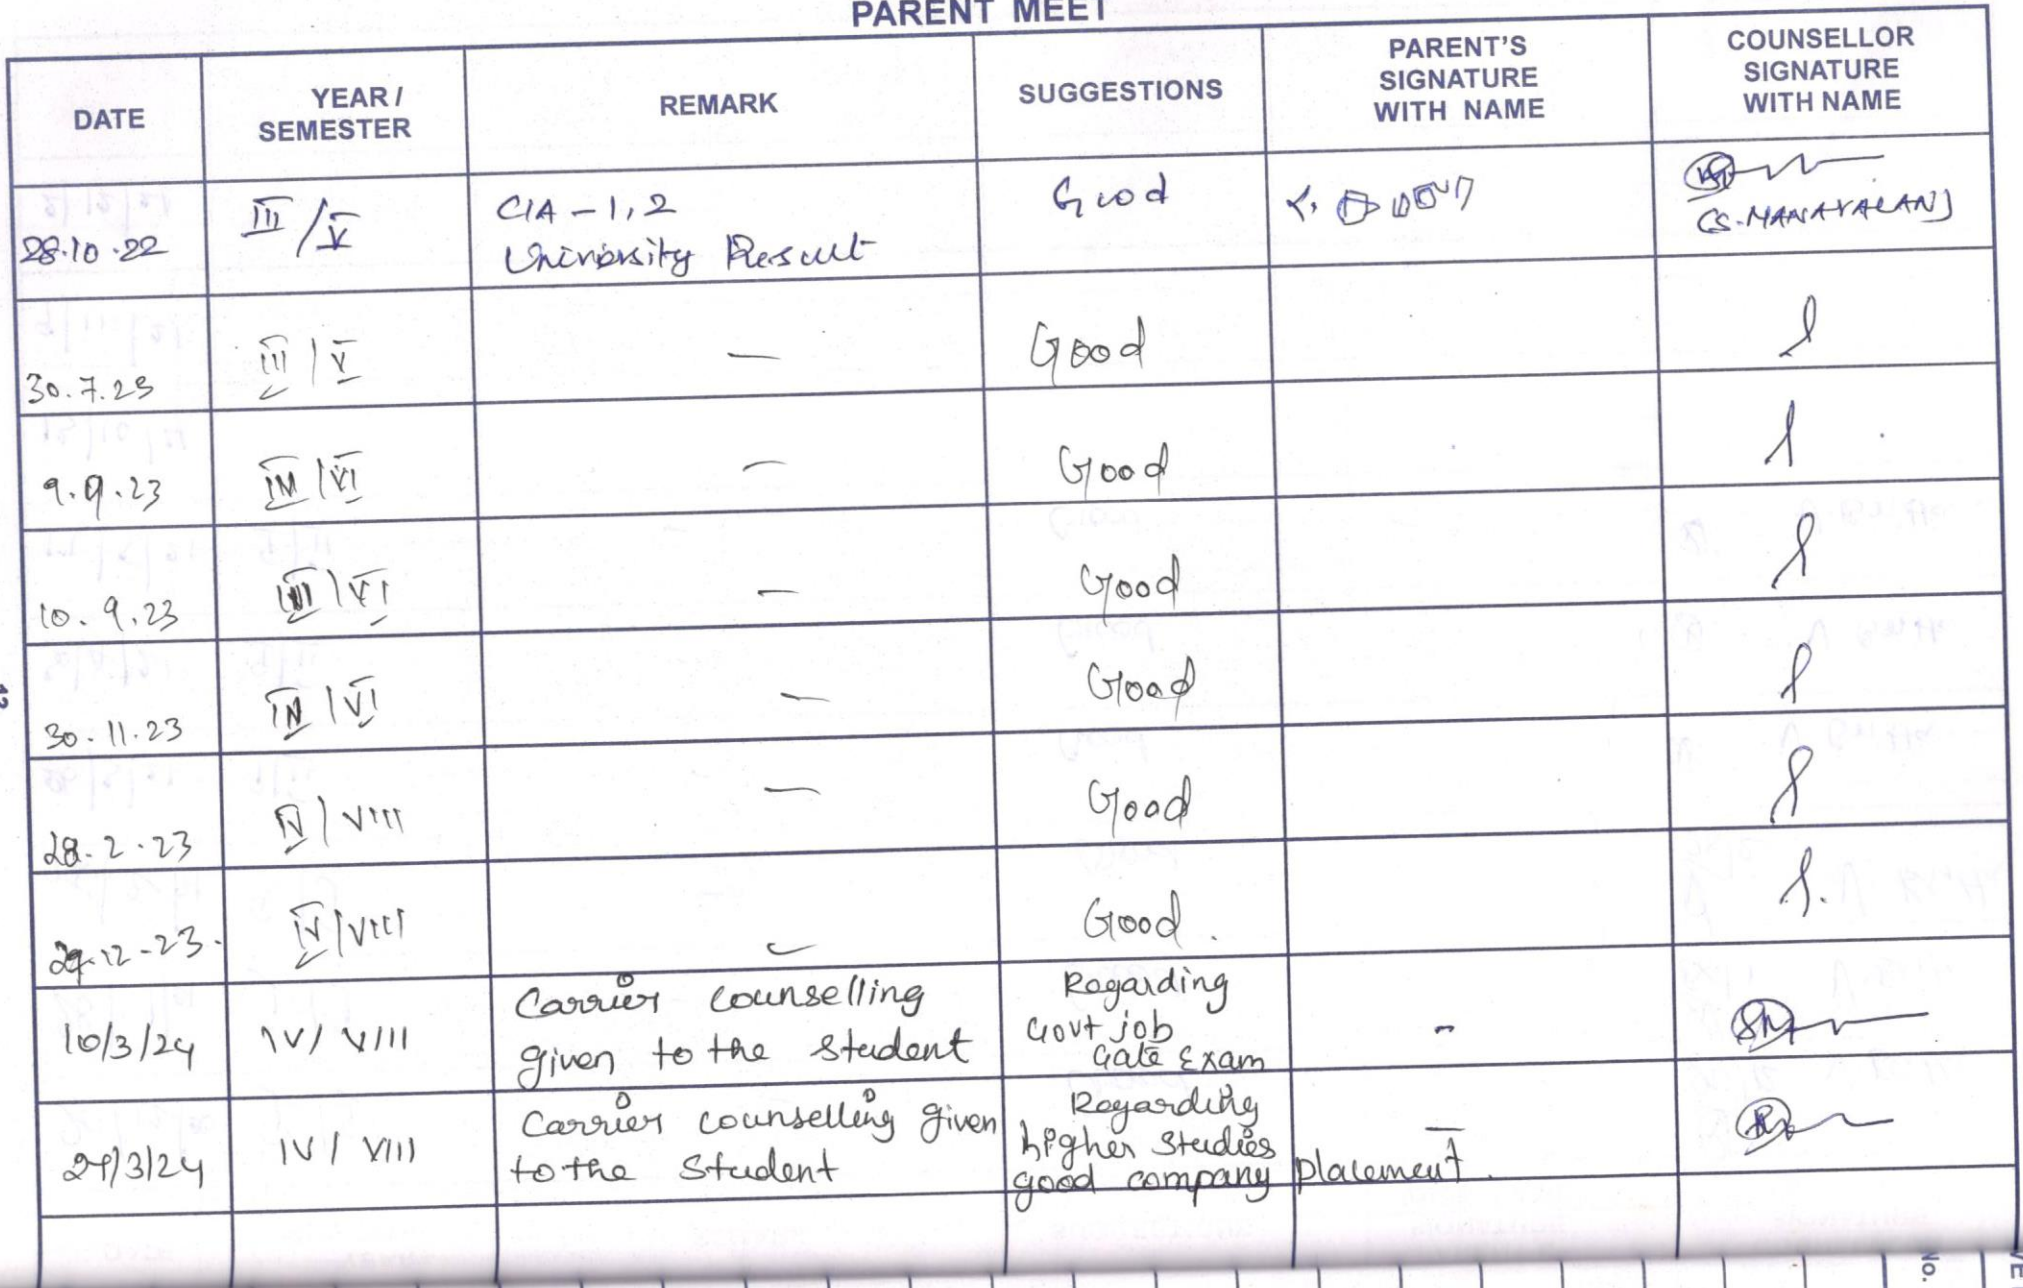 PARENT MEET
DATE YEAR / SEMESTER REMARK SUGGESTIONS PARENT'S SIGNATURE WITH NAME COUNSELLOR SIGNATURE WITH NAME
28.10.22 III / V CIA - 1, 2 Good
University Result (S. MANAVALAN)
30.7.23 III / V — Good
9.9.23 / VI — Good
10.9.23 III / VI — Good
30.11.23 IV / VI — Good
28.2.23 IV / VIII — Good
29.12.23. IV / VIII — Good.
10/3/24 IV / VIII Carrier counselling Regarding -
given to the student Govt job
Gate Exam
/3/24 IV / VIII Carrier counselling given Regarding —
to the student higher studies
good company placement.
12
No.